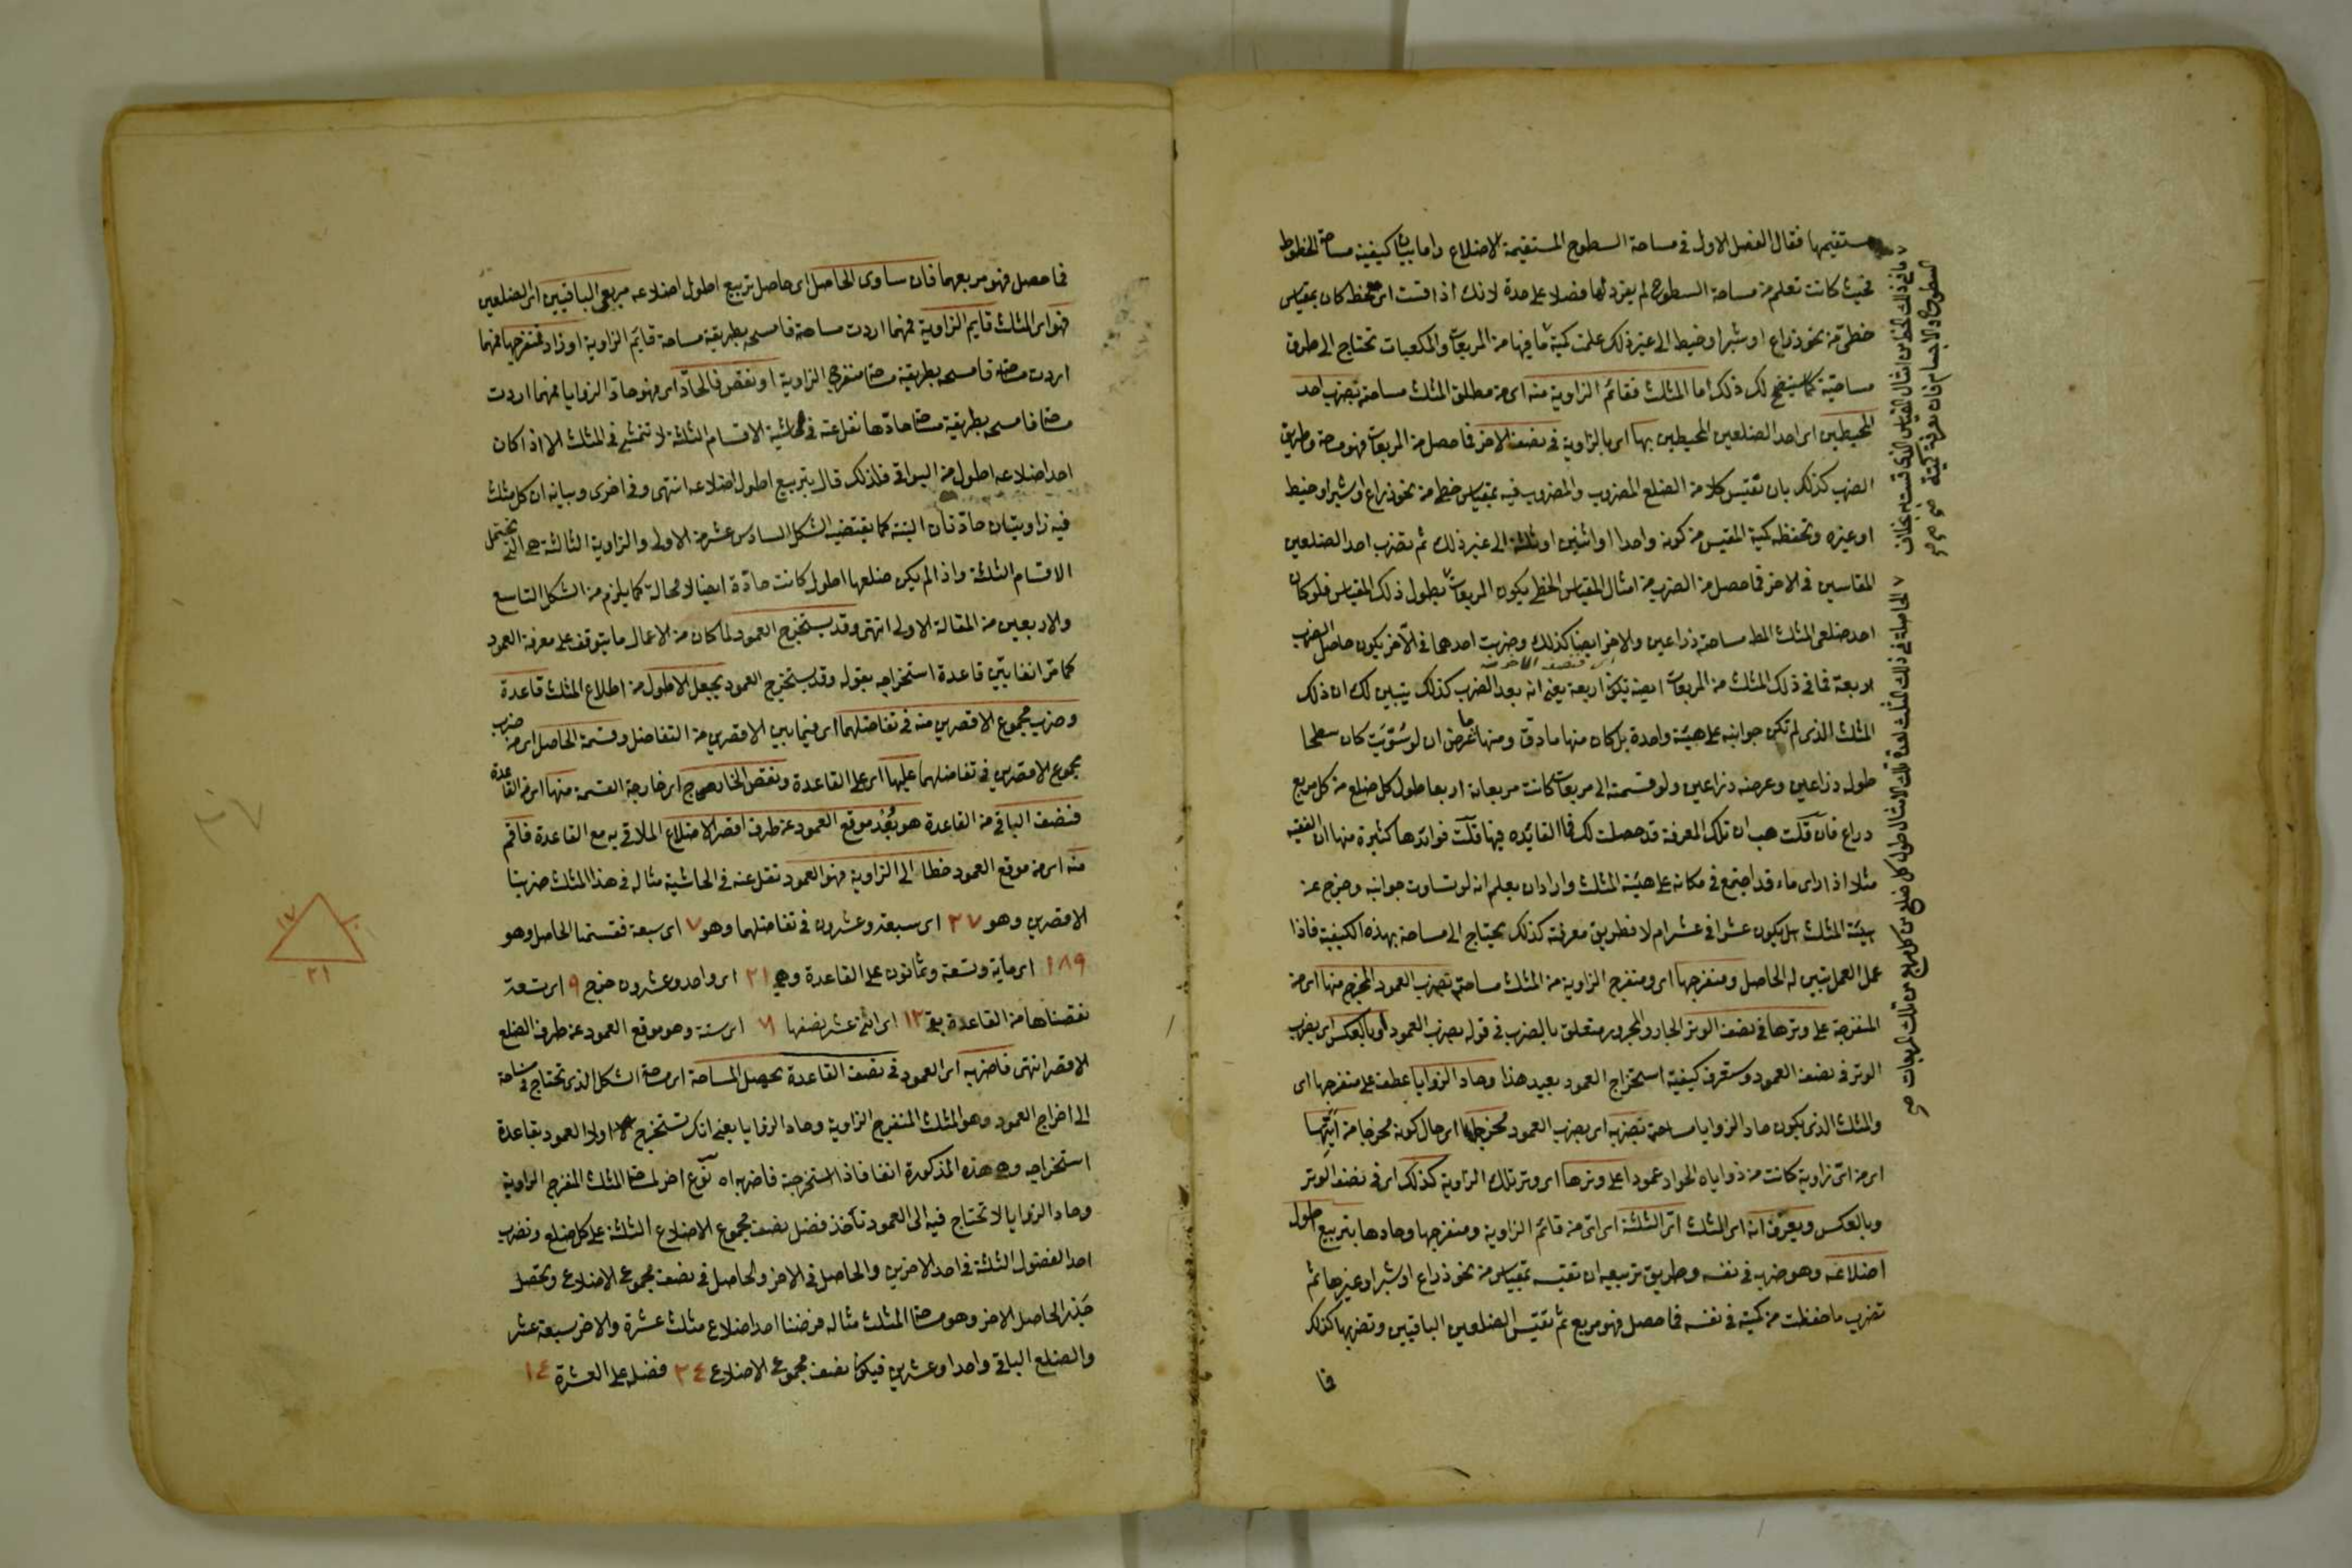 مستقيمها فقال الفصل الاول في مساحة السطوح المستقيمة الاضلاع واما بيان كيفية مساحة الخطوط
فحيث كانت تعلم من مساحة السطوح لم يفرد لها فصلا على حدة لانك اذا قست اى خط كان بمقياس
خطى من نحو ذراع او شبر او خيط الى غير ذلك علمت كمية ما فيها من المربعات والمكعبات تحتاج الى طرق
مساحتية كما سيتضح لك ذلك اما المثلث فقائم الزاوية منه اى من مطلق المثلث مساحته بضرب احد
المحيطين اى احد الضلعين المحيطين بها اى بالزاوية في نصف الاخر فما حصل من المربعات فهو مساحة وطريق
الضرب كذلك بان تقيس كلا من الضلع المضروب والمضروب فيه بمقياس خطى من نحو ذراع او شبر او خيط
او غيره وتحفظ كمية المقيس من كونه واحدا او اثنين او ثلثة الى غير ذلك ثم تضرب احد الضلعين
المقاسين في الاخر فما حصل من الضرب من امثال المقياس الخطى يكون المربعات بطول ذلك المقياس فلو كان
احد ضلعى المثلث مساحة ذراعين والاخر ايضا كذلك وضربت احدهما في الاخر يكون حاصل الضرب
اربعة فما في ذلك المثلث من المربعات ايضا تكون اربعة يعنى انه بعد الضرب كذلك يتبين لك ان ذلك
المثلث الذى لم تكن جوانبه على هيئة واحدة بل كان منها ما دق ومنها ما عرض ان لو سُوّيت كان سطحا
طوله ذراعين وعرضه ذراعين ولو قسمته الى مربعات كانت مربعاته اربعا طول كل ضلع من كل مربع
ذراع فان قلت هب ان تلك المعرفة قد حصلت لك فما الفائده فيها قلت فوائدها كثيرة منها ان الفقيه
مثلا اذا راى ماء قد اجتمع في مكانه على هيئة المثلث واراد ان يعلم انه لو تساوت جوانبه وخرج عن
هيئة المثلث هل يكون عشرا في عشر ام لا فطريق معرفته كذلك يحتاج الى مساحة بهذه الكيفية فاذا
عمل العمل تبين له الحاصل ومنفرجها اى ومنفرج الزاوية من المثلث مساحته بضرب العمود المخرج منها اى من
المنفرجة على وترها في نصف الوتر الجار والمجرور متعلق بالضرب في قوله بضرب العمود او بالعكس اى بضرب
الوتر في نصف العمود وستعرف كيفية استخراج العمود بعيد هذا وحاد الزوايا عطف على منفرجها اى
والمثلث الذى يكون حاد الزوايا مساحته بضربه اى بضرب العمود مخرجا اى حال كونه مخرجا من ايتها
اى من اى زاوية كانت من زواياه الحواد عمودا على وترها اى وتر تلك الزاوية كذلك اى في نصف الوتر
وبالعكس ويعرف انه اى المثلث اىّ الثلثة اى اىّ من قائم الزاوية ومنفرجها وحادها بتربيع اطول
اضلاعه وهو ضربه في نفسه وطريق تربيعه ان تقيسه بمقياس من نحو ذراع او شبر او غيرها ثم
تضرب ما حفظت من كميته في نفسه فما حصل فهو مربع ثم تقيس الضلعين الباقيين وتضربها كذلك
فما
فما حصل فهو مربعهما فان ساوى الحاصل اى حاصل تربيع اطول اضلاعه مربعى الباقيين اى الضلعين
فهو اى المثلث قايم الزاوية فمهما اردت مساحة فامسحه بطريقة مساحة قائم الزاوية او زاد فمنفرجها فمهما
اردت مساحته فامسحه بطريقة مساحة منفرج الزاوية او نقص فالحادّ اى فهو حادّ الزوايا فمهما اردت
مساحته فامسحه بطريقة مساحة حادّها نقل عنه في الحاشية الاقسام الثلثة لا تتمشى في المثلث الا اذا كان
احد اضلاعه اطول من البواقى فلذلك قال بتربيع اطول اضلاعه انتهى وفي اخرى وبيانه ان كل مثلث
فيه زاويتان حادّتان البتة كما يقتضيه الشكل السادس عشر من الاولى والزاوية الثالثة هى التى تحتمل
الاقسام الثلثة واذا لم يكن ضلعها اطول كانت حادّة ايضا لا محالة كما يلزم من الشكل التاسع
والاربعين من المقالة الاولى انتهى وقد يستخرج العمود لما كان من الاعمال ما يتوقف على معرفة العمود
كما مرّ انفا بيّن قاعدة استخراجه بقوله وقد يستخرج العمود بجعل الاطول من اضلاع المثلث قاعدة
وضرب مجموع الاقصرين منه في تفاضلهما اى فيما بين الاقصرين من التفاضل وقسمة الحاصل اى من ضرب
مجموع الاقصرين في تفاضلهما عليها اى على القاعدة ونقص الخارج اى خارجة القسمة منها اى من القاعدة
فنصف الباقى من القاعدة هو بُعْد موقع العمود عن طرف اقصر الاضلاع الملاقى به مع القاعدة فاقم
منه اى من موقع العمود خطا الى الزاوية فهو العمود نقل عنه في الحاشية مثاله في هذا المثلث ضربنا
الاقصرين وهو ٢٧ اى سبعة وعشرون في تفاضلهما وهو ٧ اى سبعة فقسمنا الحاصل وهو
١٨٩ اى مأية وتسعة وثمانون على القاعدة وهى ٢١ اى واحد وعشرون خرج ٩ اى تسعة
نقصناها من القاعدة بقى ١٢ اى اثنى عشر نصفها ٦ اى ستة وهو موقع العمود عن طرف الضلع
الاقصر انتهى فاضربه اى العمود في نصف القاعدة يحصل المساحة اى مساحة الشكل الذى تحتاج في مساحته
الى اخراج العمود وهو المثلث المنفرج الزاوية وحاد الزوايا يعنى انك تستخرج اولا العمود بقاعدة
استخراجه وهى هذه المذكورة انفا فاذا استخرجته فاضربه اه نوع اخر لمساحة المثلث المنفرج الزاوية
وحاد الزوايا لا تحتاج فيه الى العمود تأخذ فضل نصف مجموع الاضلاع الثلثة على كل ضلع وتضرب
احد الفضول الثلثة في احد الاخرين والحاصل في الاخر والحاصل في نصف مجموع الاضلاع وتحصل
جذر الحاصل الاخر وهو مساحة المثلث مثاله فرضنا احد اضلاع مثلث عشرة والاخر سبعة عشر
والضلع الباقى واحدا وعشرين فيكون نصف مجموع الاضلاع ٢٤ فضله على العشرة ١٤
١٧
١٠
٢١